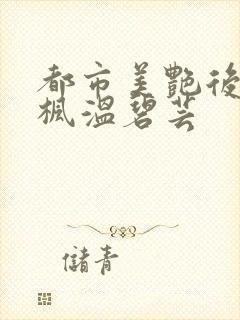 都市美艷後
楓溫碧芸
儲青